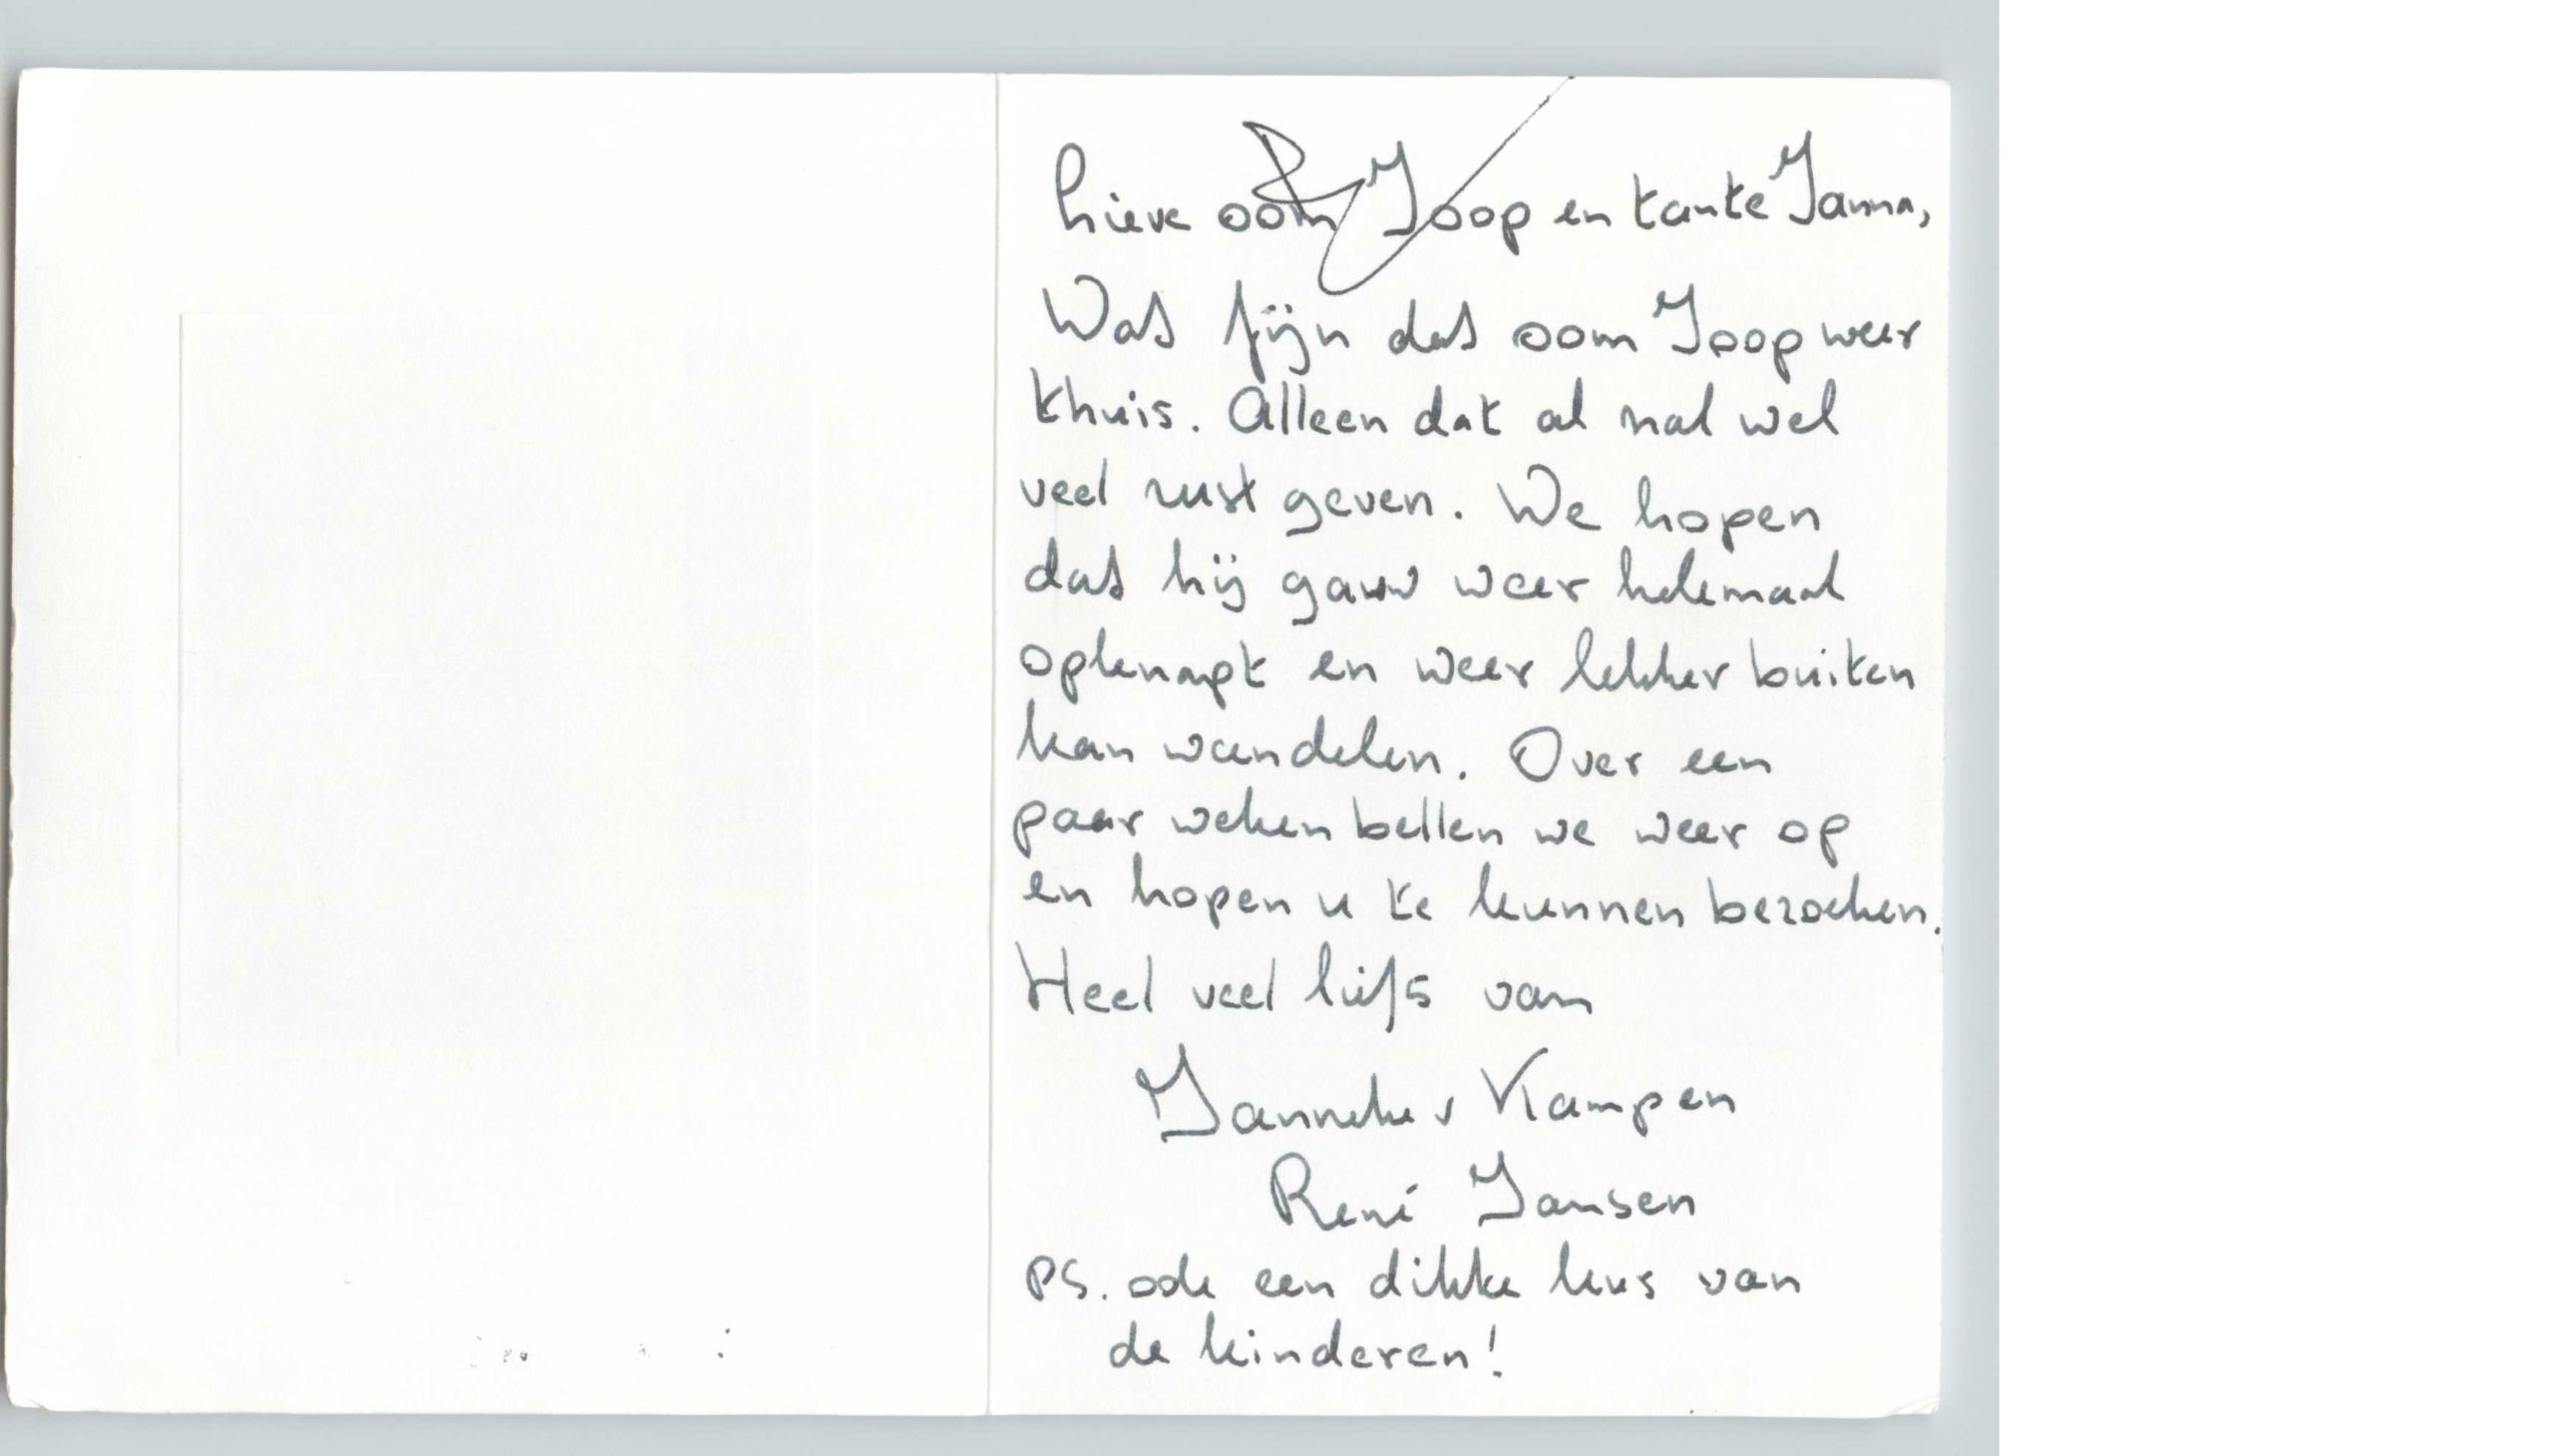 Lieve oom Joop en tante Janna,
Wat fijn dat oom Joop weer
thuis. Alleen dat al zal wel
veel rust geven. We hopen
dat hij gauw weer helemaal
opknapt en weer lekker buiten
kan wandelen. Over een
paar weken bellen we weer op
en hopen u te kunnen bezoeken.
Heel veel liefs van
Janneke v Kampen
René Jansen
PS. ook een dikke kus van
de kinderen!